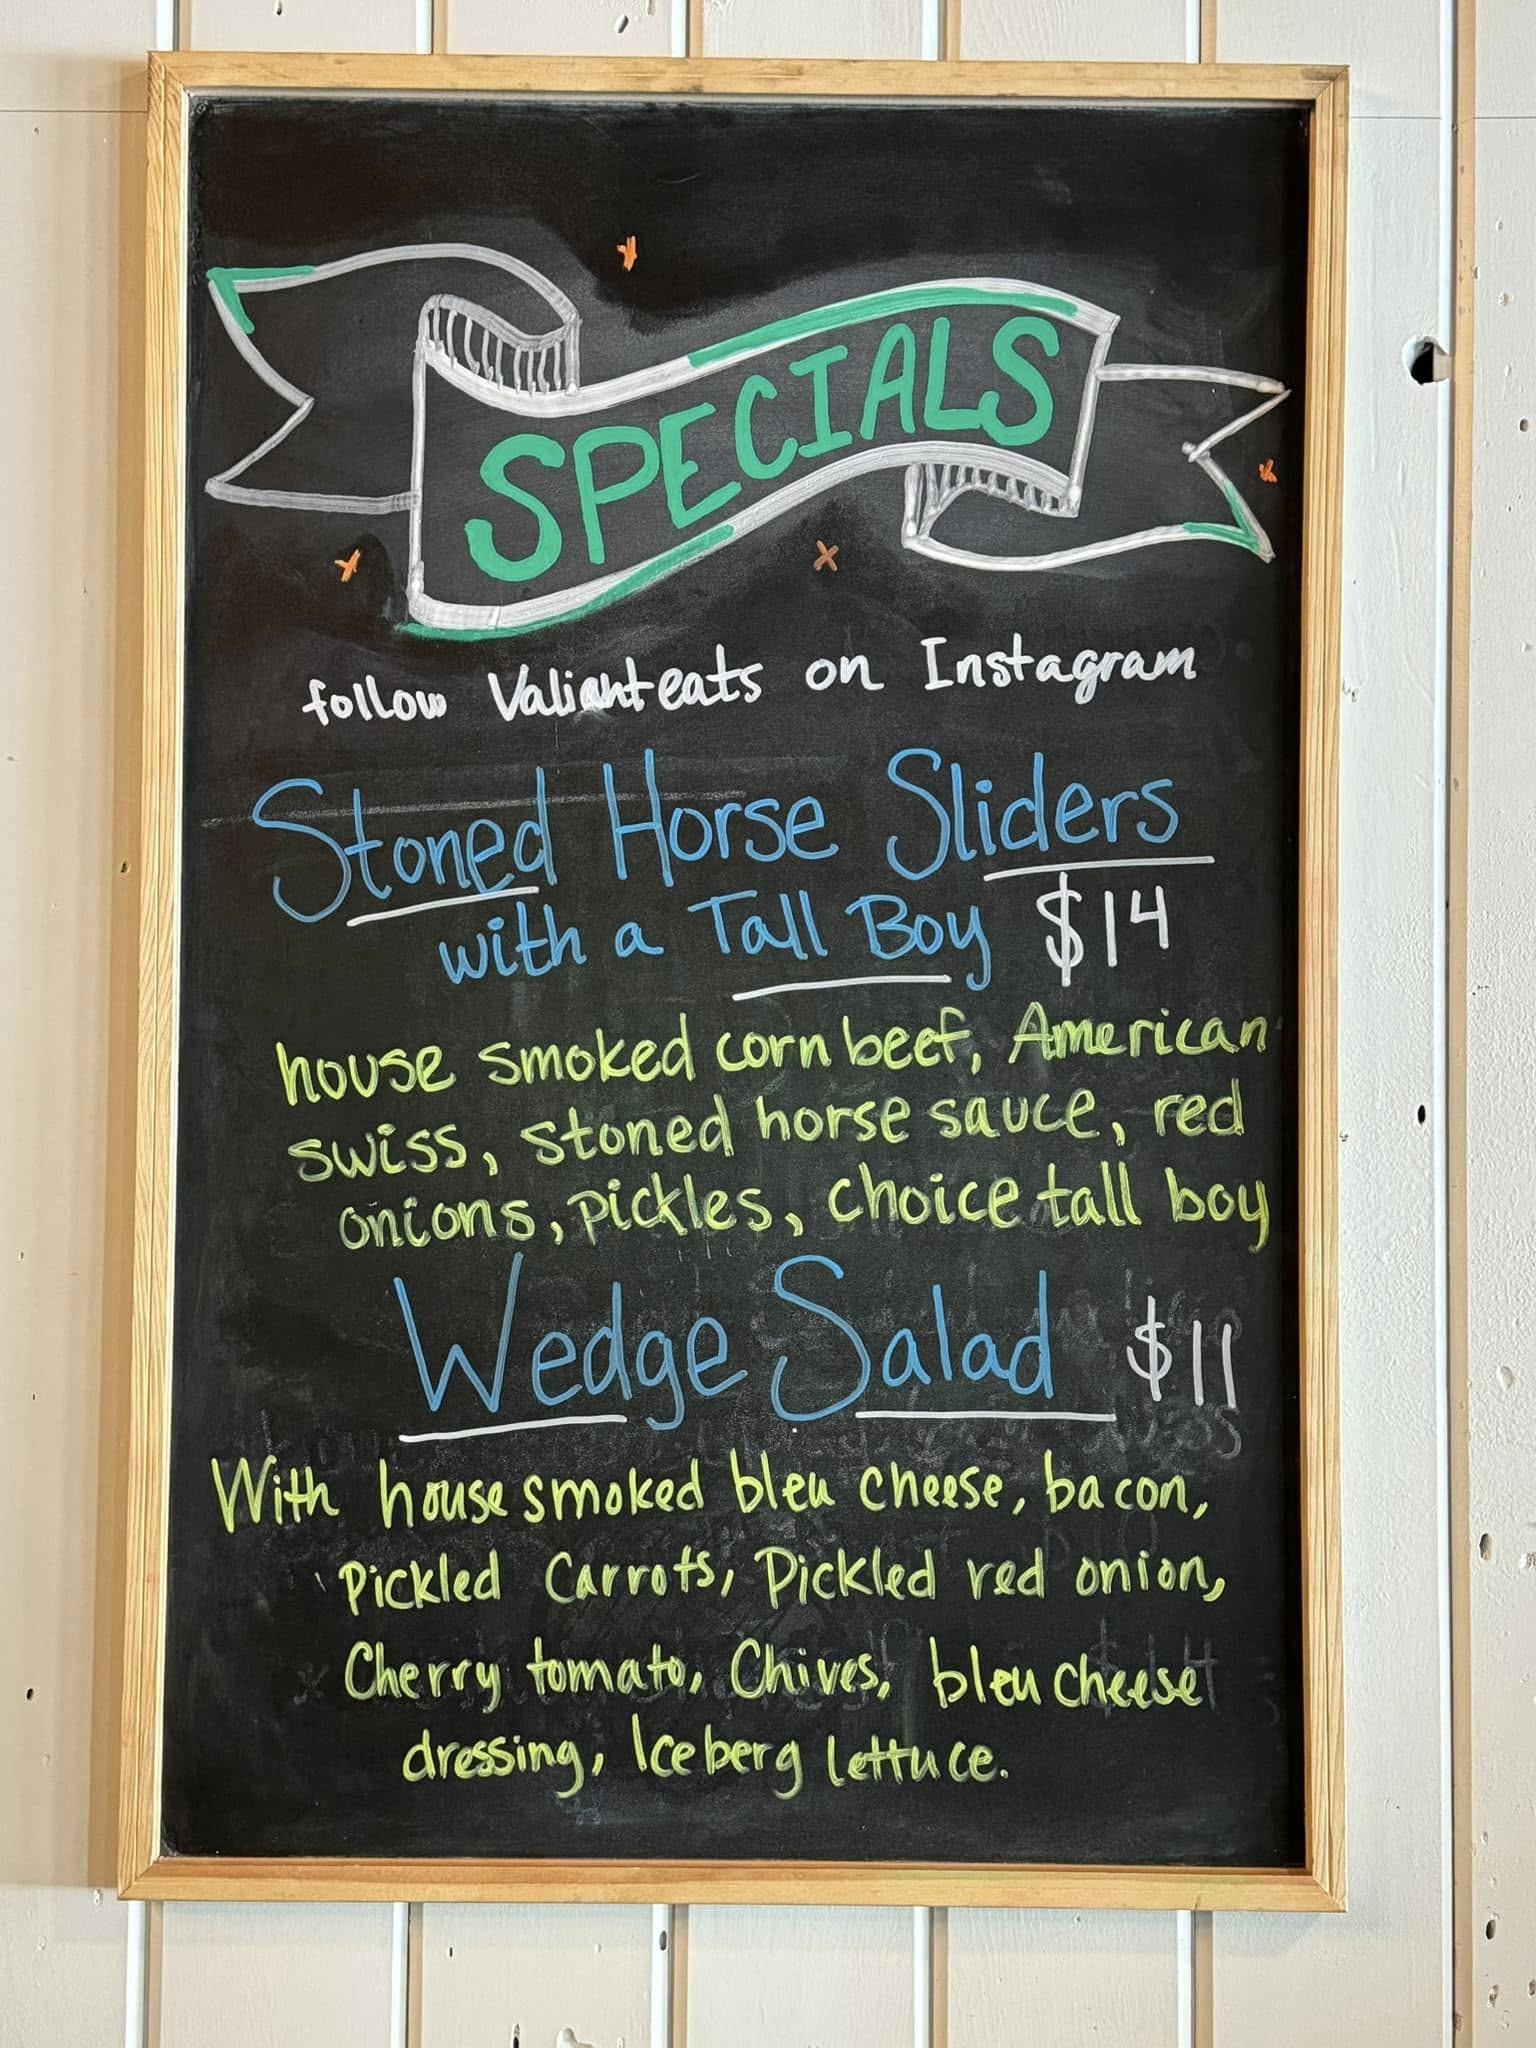 SPECIALS
follow Valianteats on Instagram
Stoned Horse Sliders
with a Tall Boy $14
house smoked corn beef, American
swiss, stoned horse sauce, red
onions, pickles, choice tall boy
Wedge Salad $11
With house smoked bleu cheese, bacon,
Pickled Carrots, Pickled red onion,
Cherry tomato, Chives, bleu cheese
dressing, Iceberg lettuce.